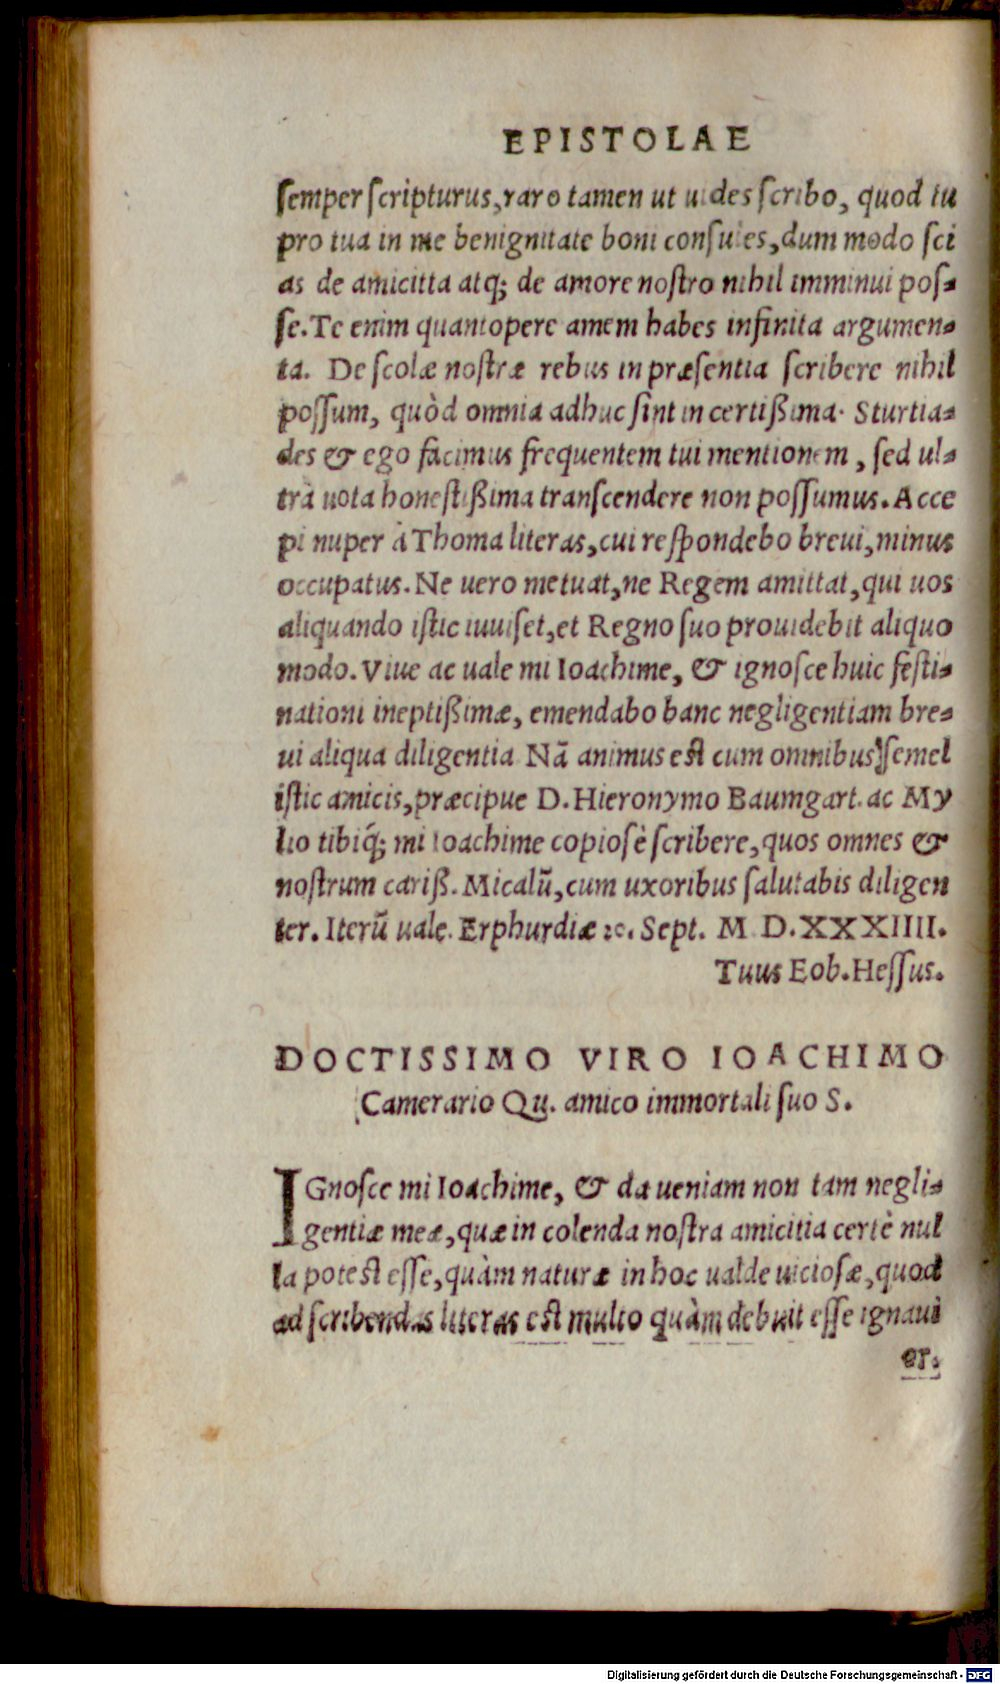 EPISTOLAE
semper scripturus, raro tamen ut uides scribo, quod tu
pro tua in me benignitate boni consules, dum modo sci
as de amicitta atq; de amore nostro nihil imminui pos-
se. Te enim quantopere amem habes infinita argumen-
ta. De scolæ nostræ rebus in præsentia scribere nihil
possum, quòd omnia adhuc sint in certißima. Sturtia-
des & ego facimus frequentem tui mentionem, sed ul-
trà uota honestißima transcendere non possumus. Acce
pi nuper à Thoma literas, cui respondebo breui, minus
occupatus. Ne uero metuat, ne Regem amittat, qui uos
aliquando istic iuuiset, et Regno suo prouidebit aliquo
modo. Viue ac uale mi Ioachime, & ignosce huic festi-
nationi ineptißimæ, emendabo hanc negligentiam bre-
ui aliqua diligentia Nã animus est cum omnibus semel
istic amicis, præcipue D. Hieronymo Baumgart. ac My
lio tibiq́; mi Ioachime copiosè scribere, quos omnes &
nostrum cariß. Micalũ, cum uxoribus salutabis diligen
ter. Iterũ uale. Erphurdiæ 2c. Sept. M D. XXXIIII.
Tuus Eob. Hessus.
DOCTISSIMO VIRO IOACHIMO
Camerario Qu. amico immortali suo S.
IGnosce mi Ioachime, & da ueniam non tam negli-
gentiæ meæ, quæ in colenda nostra amicitia certè nul
la potest esse, quàm naturæ in hoc ualde uiciosæ, quod
ad scribendas literas est multo quàm debuit esse ignaui
or.
Digitalisierung gefördert durch die Deutsche Forschungsgemeinschaft - DFG